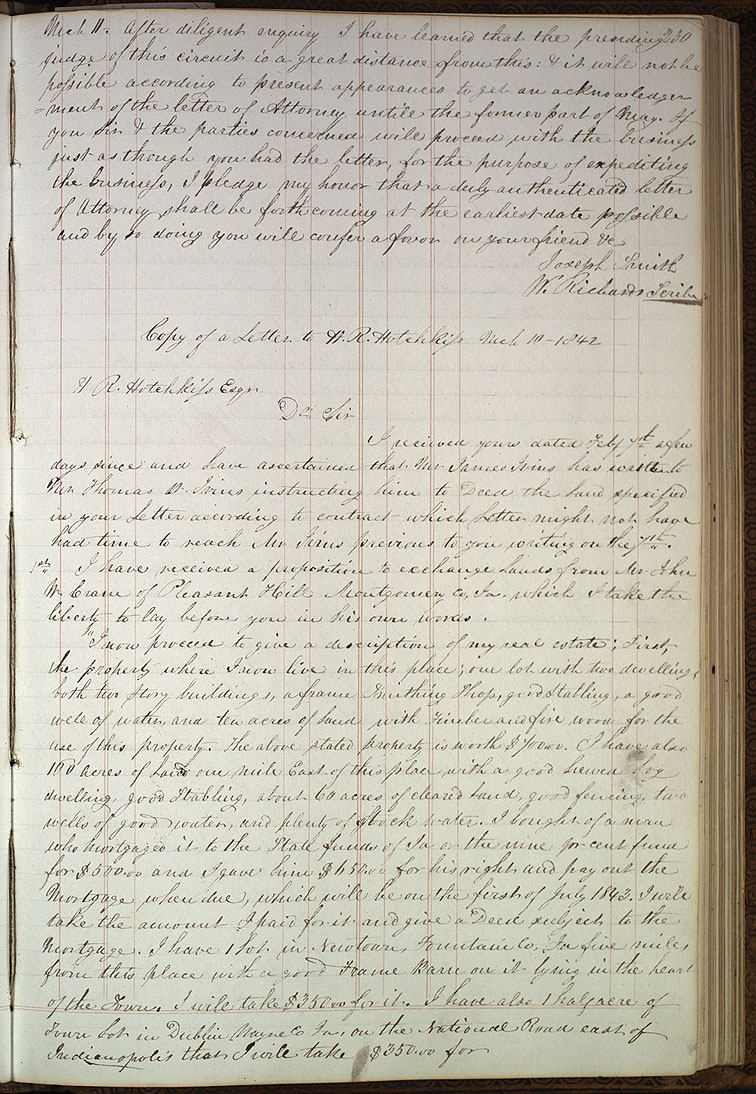 Mch 11. After diligent enquiry I have learned that the presiding 230
judge of this circuit is a great distance from this: & it will not be
possible according to present appearances to get an acknowledge
=ment of the letter of Attorney untile the former part of May. If
you Sir & the parties concerned will proceed with the business
just as though you had the letter, for the purpose of expediting
the business, I pledge my honor that a duly authenticated letter
of Attorney shall be forthcoming at the earliest date possible
and by so doing you will confer a favor on your friend &c
Joseph Smith
W. Richards Scribe
Copy of a Letter to H. R. Hotchkiss Mch 10-1842
H R. Hotchkiss Esqr
Dr Sir
I received yours dated Feby 7th a few
days since and have ascertained that Mr. James Ivins has written to
Mr. Thomas Ivins instructing him to Deed the Land specified
in your Letter according to contract which Letter might not have
had time to reach Mr Ivins previous to you writing on the 7th.
1st I have received a proposition to exchange Lands from Mr John
W. Crane of Pleasant Hill Montgomery Co, Ia. which I take the
liberty to lay before you in his own words.
"I now proceed to give a description of my real estate; First,
the property where I now live in this place; one lot with two dwellings
both two story buildings, a frame Smithing Shop, good Stabling, a good
well of water, and ten acres of Land with Timber and fire wood for the
use of this property. The above stated property is worth $ I have also
100 acres of Land one mile East of this place with a good hewen Log
dwelling, good Stabling, about 60 acres of cleared Land, good fencing, two
wells of good water, and plenty of Stock water. I bought of a man
who mortgaged it to the State funds of Ia or the nine per cent fund
for $500.00 and I gave him $650.00 for his right and pay out the
Mortgage when due, which will be on the first of July 1843. I will
take the amount I paid for it and give a Deed subject to the
Mortgage. I have 1 Lot in Newtown, Fountain Co, Ia five miles
from this place with a good Frame Barn on it lying in the heart
of the Town. I will take $350.00 for it. I have also 1 half acre of
Town Lot in Dublin Wayne Co Ia, on the National Road east of
Indianopolis that I will take $350.00 for